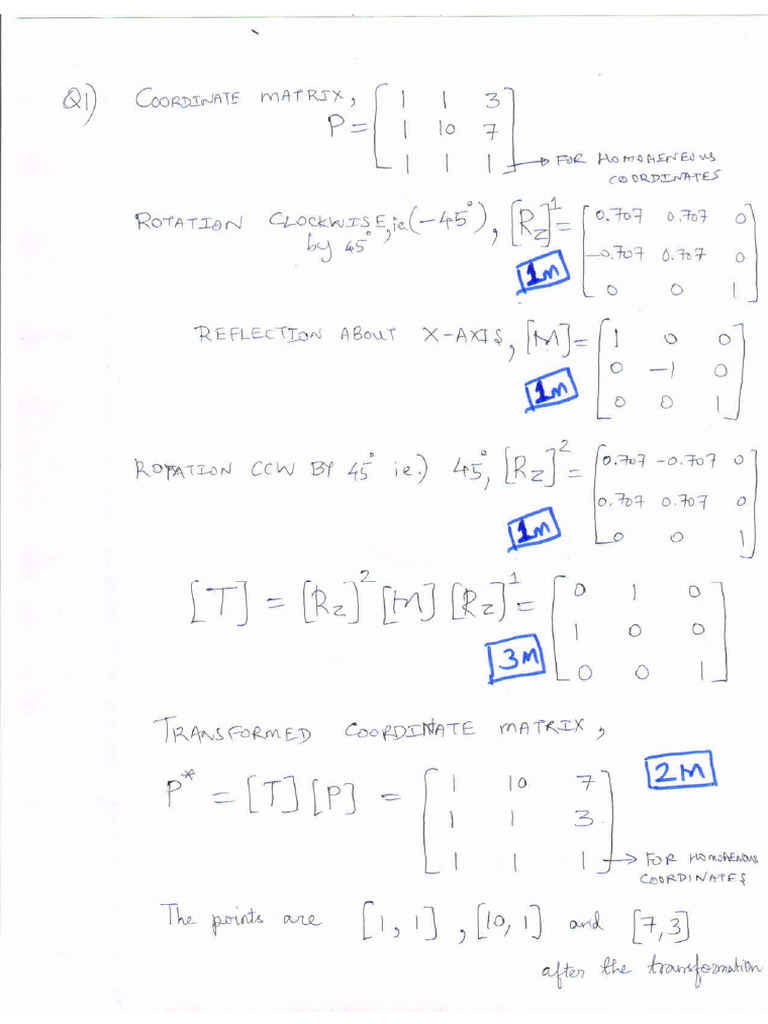 Q1) COORDINATE MATRIX, P = [1 1 3
1 10 7
1 1 1] → FOR HOMOHENEOUS
COORDINATES
ROTATION CLOCKWISE, ie. (-45°), [Rz]¹ = [0.707 0.707 0
by 45°
-0.707 0.707 0
1m
0 0 1]
REFLECTION ABOUT X-AXIS, [M] = [1 0 0
0 -1 0
1m
0 0 1]
ROTATION CCW BY 45° ie.) 45°, [Rz]² = [0.707 -0.707 0
0.707 0.707 0
1m
0 0 1]
[T] = [Rz]² [M] [Rz]¹ = [0 1 0
1 0 0
3M
0 0 1]
TRANSFORMED COORDINATE MATRIX,
2M
P* = [T] [P] = [1 10 7
1 1 3
1 1 1] → FOR HOMOHENOUS
COORDINATES
The points are [1, 1], [10, 1] and [7, 3]
after the transformation